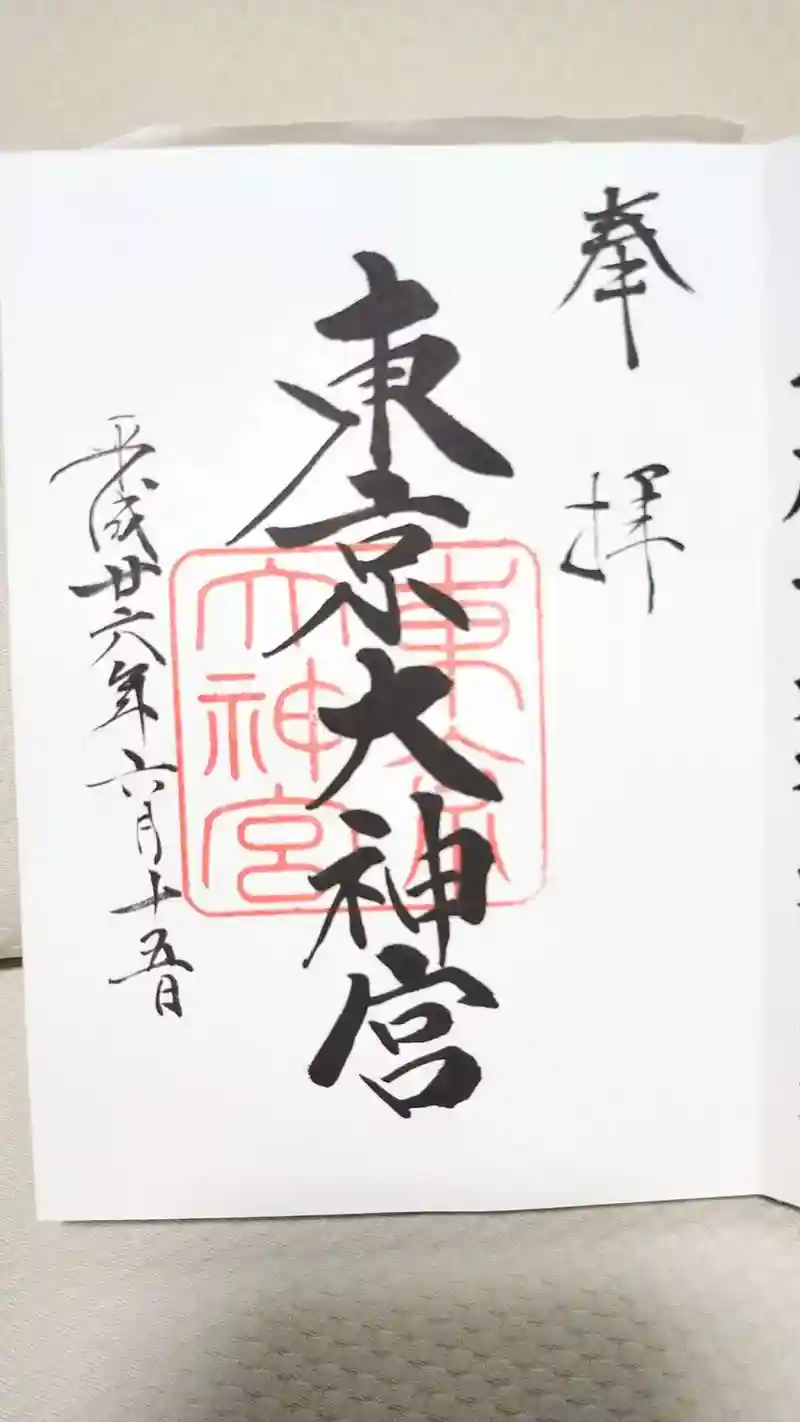 奉拝
東京大神宮
東京
大神宮
平成廿六年六月十五日